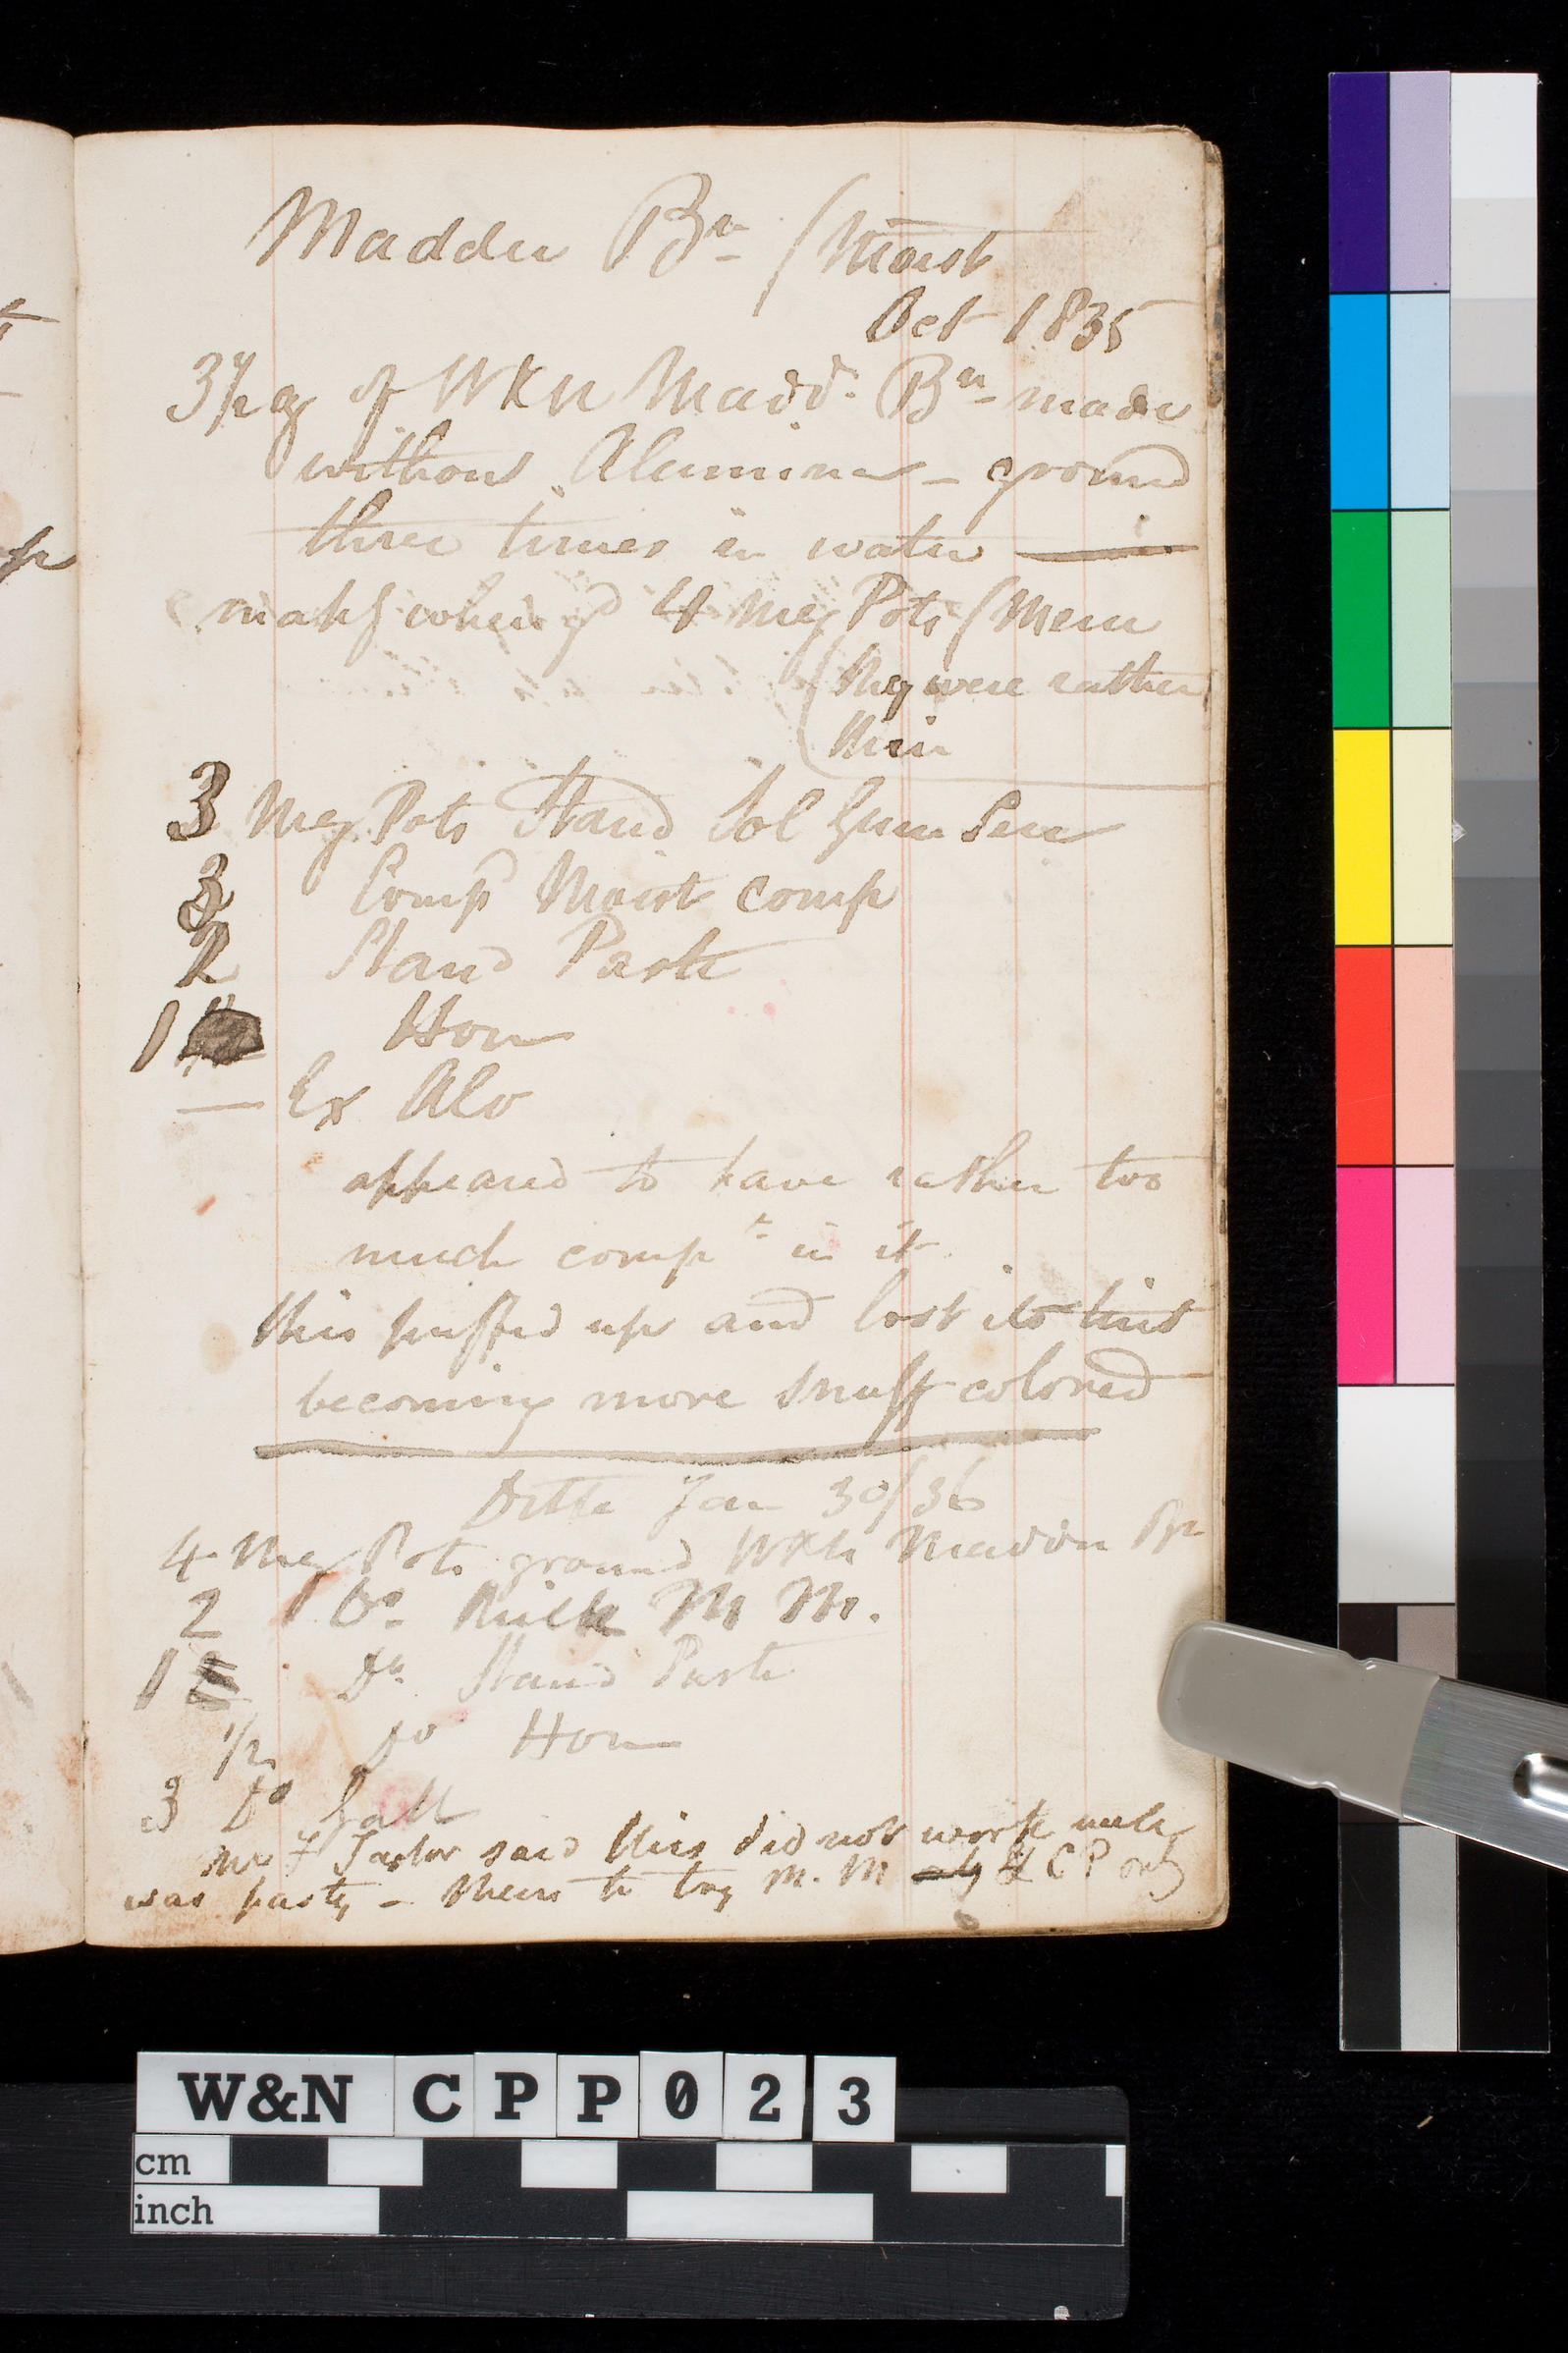 Madder Bn / Moist
Oct 1835
3 1/2 oz of W&N Madd. Bn made
without Alumina - ground
three times in water
makg when gd 4 Meg Pots (Mem
they were rather
thin
3 Meg Pots Stand Sol Gum Sen
3 Comp Moist comp
2 Stand Paste
1 Hon
- Ex Alo
appeared to have rather too
much comp n in it
this puffed up and lost its tint
becoming more snuff colored
Ditto Jan 30/36
4 Meg Pots ground W&N Madder Br
2 Do M M.
1 Do Stand Paste
1/2 Do Hon
3 Do Gall
Mr Taylor said this did not work well
was pasty - Mem to try M. M & C P only
W&N CPP023
cm
inch